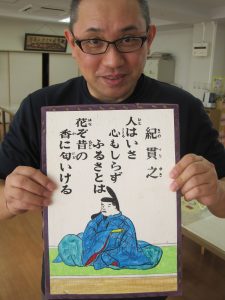 紀貫之
人はいさ
心もしらず
ふるさとは
花ぞ昔の
香に匂いける